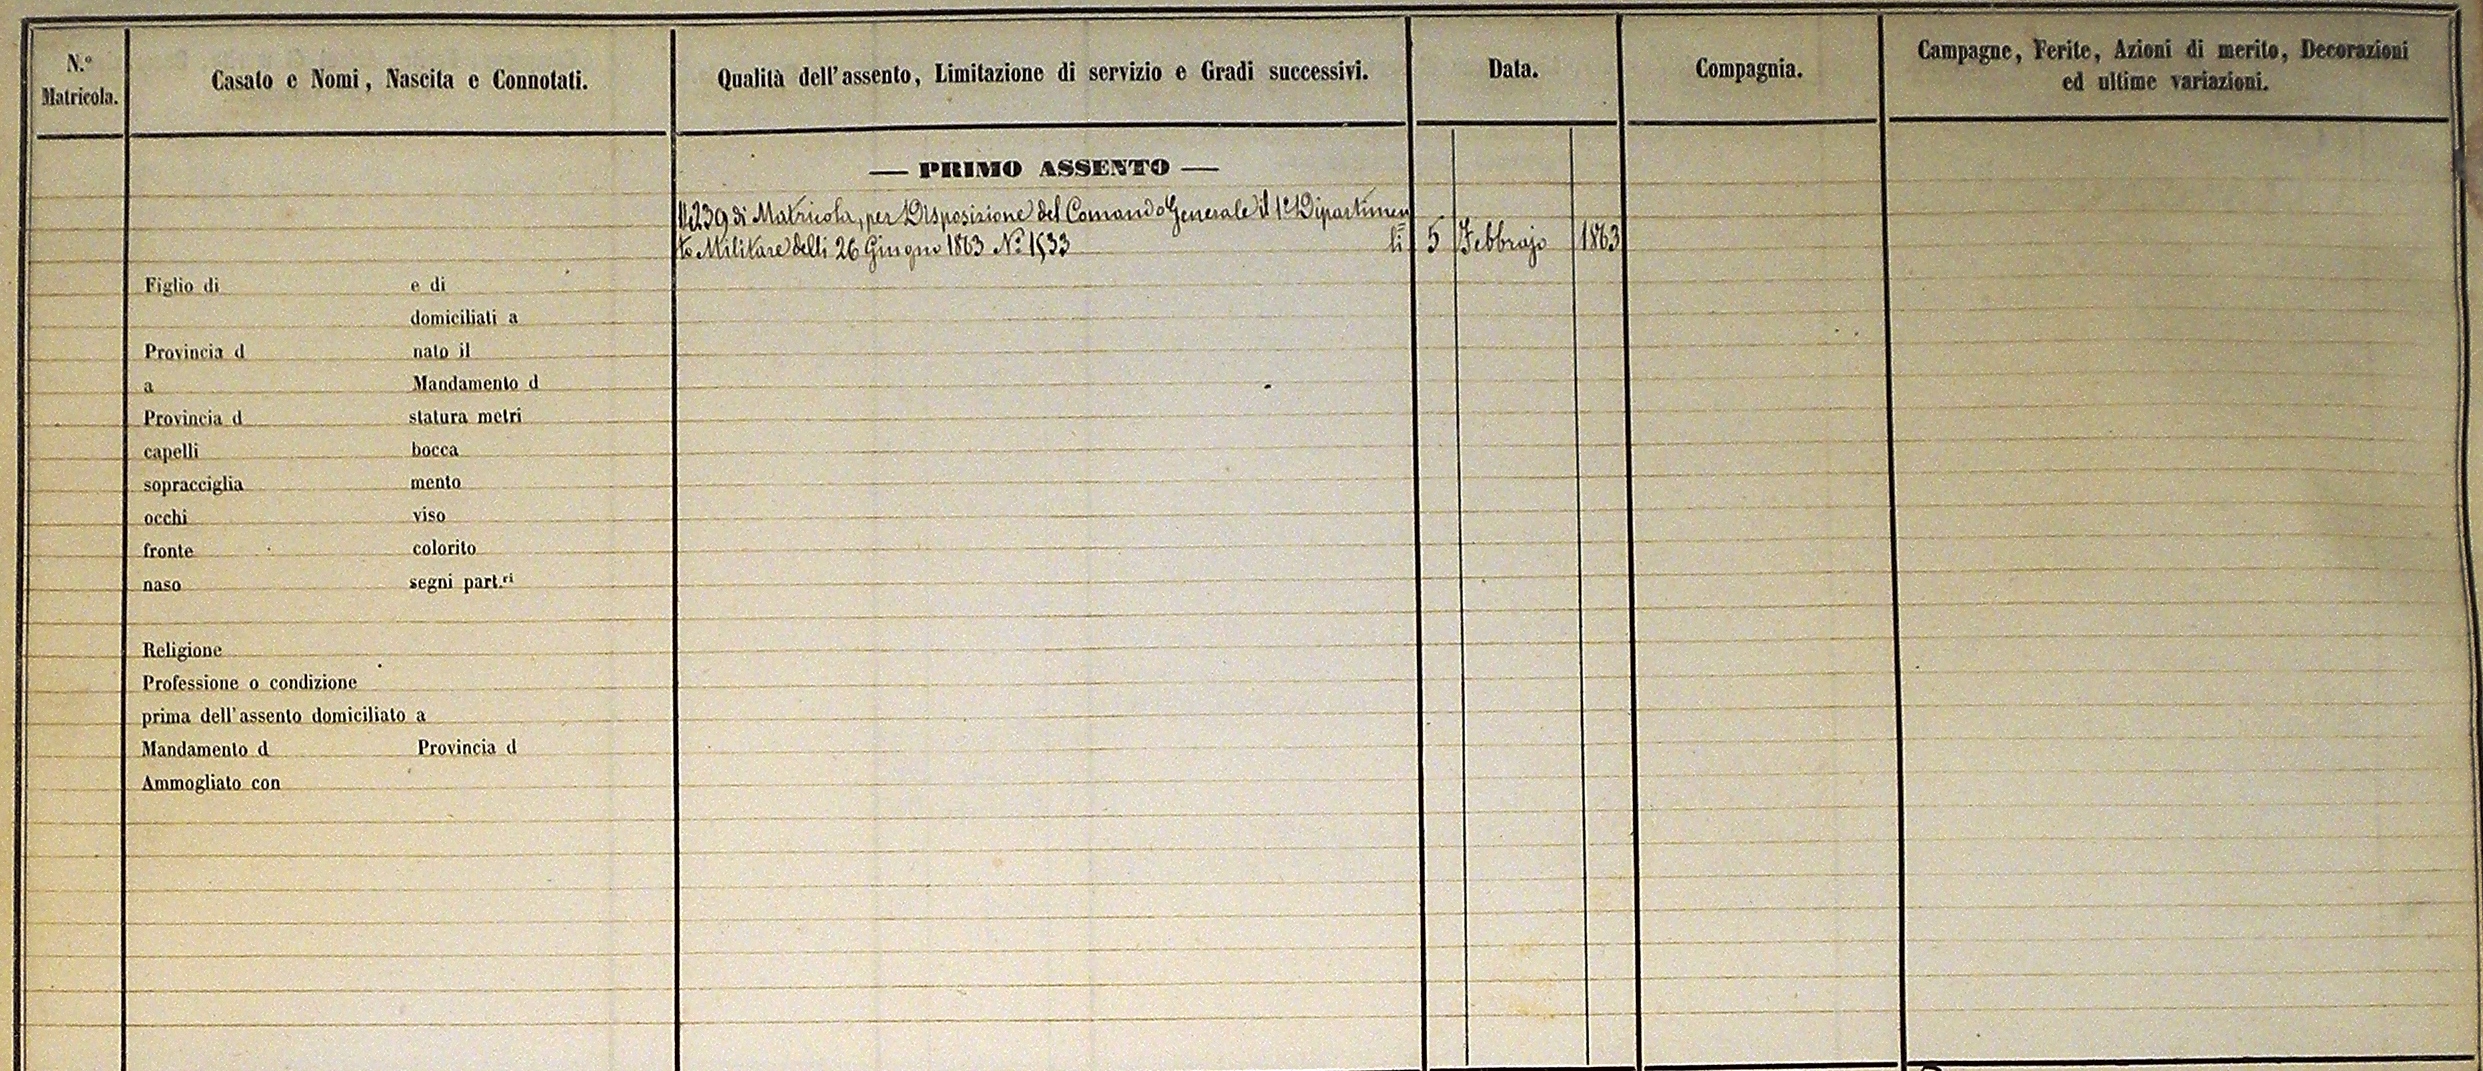 N.º Matricola.
Casato e Nomi, Nascita e Connotati.
Qualità dell'assento, Limitazione di servizio e Gradi successivi.
Data.
Compagnia.
Campagne, Ferite, Azioni di merito, Decorazioni
ed ultime variazioni.
— PRIMO ASSENTO —
di Matricola, per Disposizione del Comando Generale il 1º Dipartimen
to Militare delli 26 Giugno 1863 Nº li 5 Febbrajo 1863
Figlio di e di
domiciliati a
Provincia d nato il
a Mandamento d
Provincia d statura metri
capelli bocca
sopracciglia mento
occhi viso
fronte colorito
naso segni part.ri
Religione
Professione o condizione
prima dell'assento domiciliato a
Mandamento d Provincia d
Ammogliato con